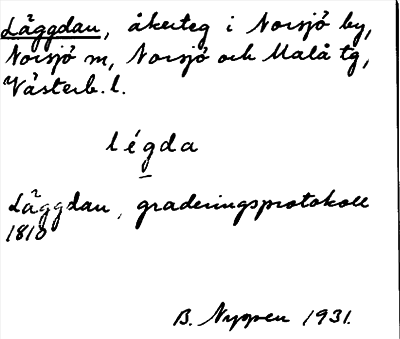 Läggdan, åkerteg i Norsjö by,
Norsjö sn, Norsjö och Malå tg,
Västerb. l.
légda
Läggdan, graderingsprotokoll
1810
B. Nyppen 1931.